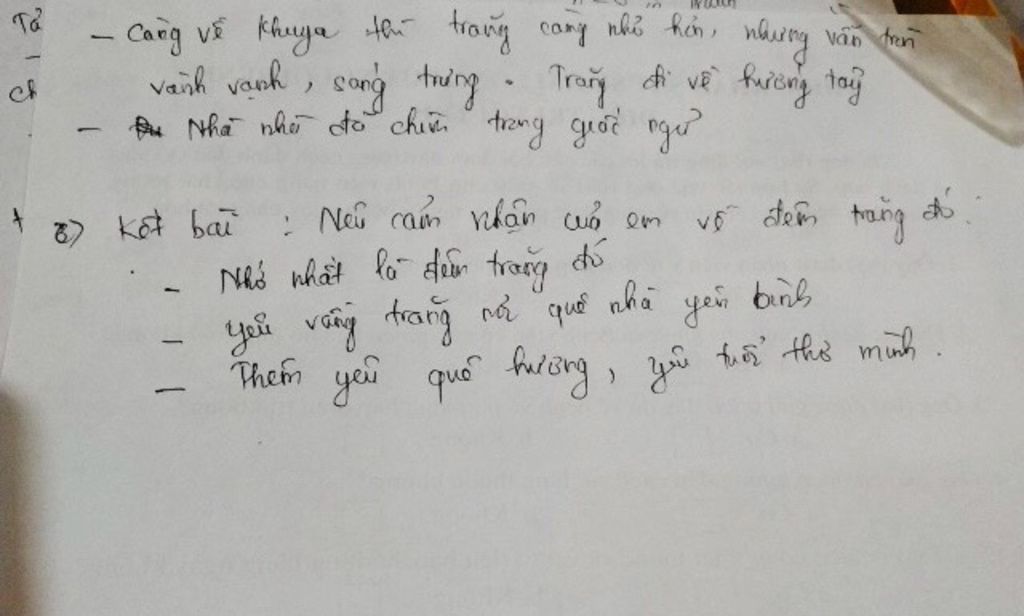 Tả
- Càng về khuya thì trăng càng nhỏ hơn, nhưng vẫn tròn
vành vạnh, sáng trưng. Trăng đi về hướng tây
- Nhà nhà đã chìm trong giấc ngủ
3) Kết bài : Nêu cảm nhận của em về đêm trăng đó.
- Nhớ nhất là đêm trăng đó
- yêu vầng trăng nơi quê nhà yên bình
- Thêm yêu quê hương, yêu tuổi thơ mình.